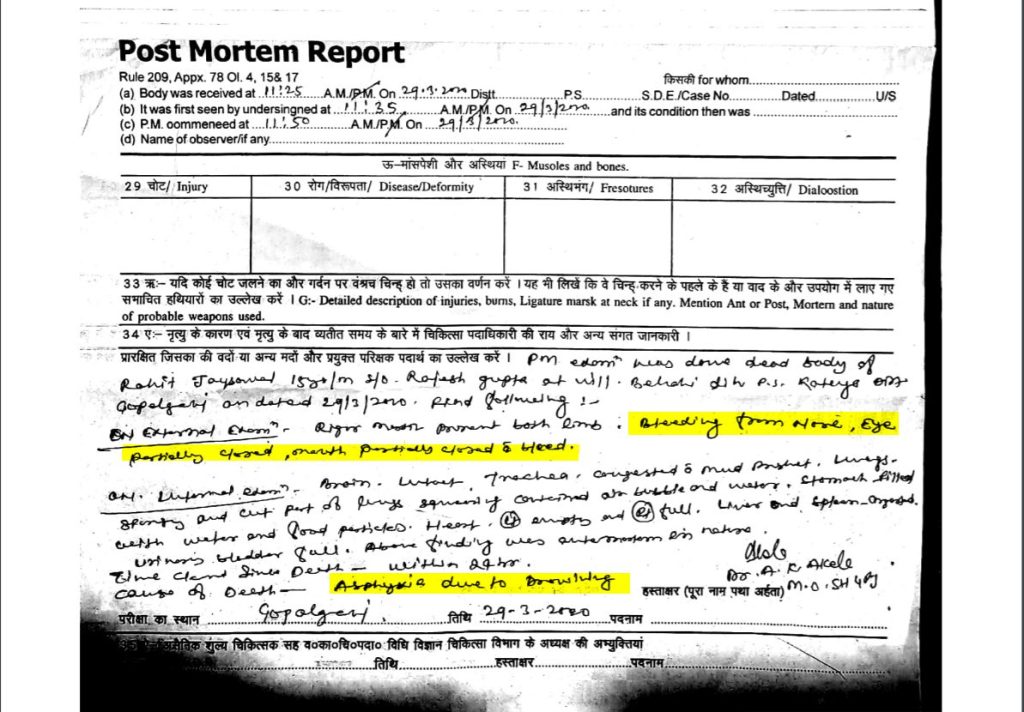 Post Mortem Report
Rule 209, Appx. 78 Ol. 4, 15& 17
किसकी for whom
(a) Body was received at 11:25 A.M./P.M. On 29.3.2020 Distt. P.S. S.D.E./Case No. Dated. U/S
(b) It was first seen by undersingned at 11:35 A.M./P.M. On 29/3/2020 and its condition then was
(c) P.M. oommeneed at 11:50 A.M./P.M. On 29/3/2020.
(d) Name of observer/if any
ऊ-मांसपेशी और अस्थियां F- Musoles and bones.
29 चोट/ Injury 30 रोग/विरूपता/ Disease/Deformity 31 अस्थिभंग/ Fresotures 32 अस्थिच्युत्ति/ Dialoostion
33 ऋ:- यदि कोई चोट जलने का और गर्दन पर वंश्रच चिन्ह हो तो उसका वर्णन करें । यह भी लिखें कि वे चिन्ह-करने के पहले के हैं या वाद के और उपयोग में लाए गए
समाचित हथियारों का उल्लेख करें । G:- Detailed description of injuries, burns, Ligature marsk at neck if any. Mention Ant or Post, Mortern and nature
of probable weapons used.
34 ए:- मृत्यु के कारण एवं मृत्यु के बाद व्यतीत समय के बारे में चिकित्सा पदाधिकारी की राय और अन्य संगत जानकारी ।
प्रारक्षित जिसका की वदों या अन्य मदों और प्रयुक्त परिक्षक पदार्थ का उल्लेख करें । PM examn was done dead body of
Rohit Jaysawal 15yr/m s/o. Rajesh gupta at vill. Belahi dih P.S. Kateya
Gopalganj on dated 29/3/2020. following :-
External Examn- present both limb. Bleeding from Nose, Eye
partially closed, mouth partially closed bleed.
Internal examn- Brain. Intact, Trachea. congested Lungs-
spongy and cut part of lungs squeezing contained air bubble and water. Stomach filled
with water and food particles. Heart. empty and full. Liver and spleen
urinary bladder full. Above finding was antemortem in nature.
Time Since Death- within 24 hr.
Dr. A. K. Akela
cause of Death- Asphyxia due to Drowning
हस्ताक्षर (पूरा नाम पथा अर्हता) M.O. SH
परीक्षा का स्थान Gopalganj. तिथि 29-3-2020 पदनाम
शुल्य चिकित्सक सह व०का०चि०पदा० विधि विज्ञान चिकित्सा विभाग के अध्यक्ष की अभ्युक्तियां
तिथि हस्ताक्षर पदनाम